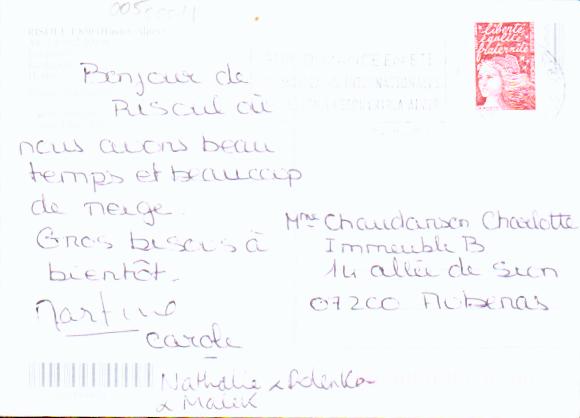 005
RISOUL 1850 (Hautes Alpes)
Liberté
égalité
fraternité
Bonjour de
Risoul où
nous avons beau
temps et beaucoup
de neige.
Gros bisous à
bientôt.
Martine
Carole
Nathalie & Zdenko
& Malik
Mme Chaudanson Charlotte
Immeuble B
14 allée de Sion
07200 Aubenas